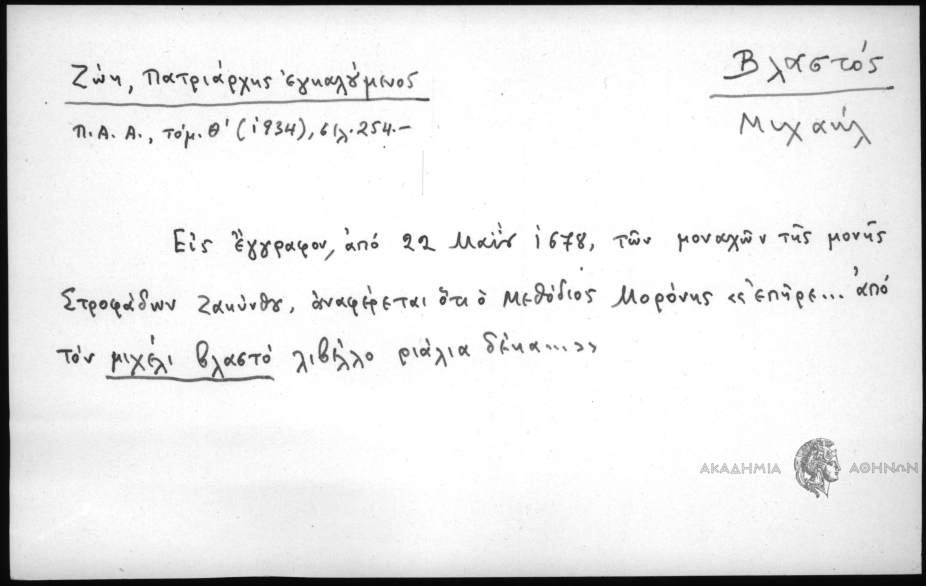 Ζώη, Πατριάρχης ἐγκαλούμενος
Π.Α.Α., τόμ. Θ' (1934), σελ. 254.-
Βλαστός
Μιχαήλ
Εἰς ἔγγραφον, ἀπό 22 Μαΐου 1678, τῶν μοναχῶν τῆς μονῆς
Στροφάδων Ζακύνθου, ἀναφέρεται ὅτι ὁ Μεθόδιος Μορόνης «ἐπῆρε... ἀπό
τόν μιχέλι βλαστό λιβέλλο ριάλια δέκα...»
ΑΚΑΔΗΜΙΑ ΑΘΗΝΩΝ